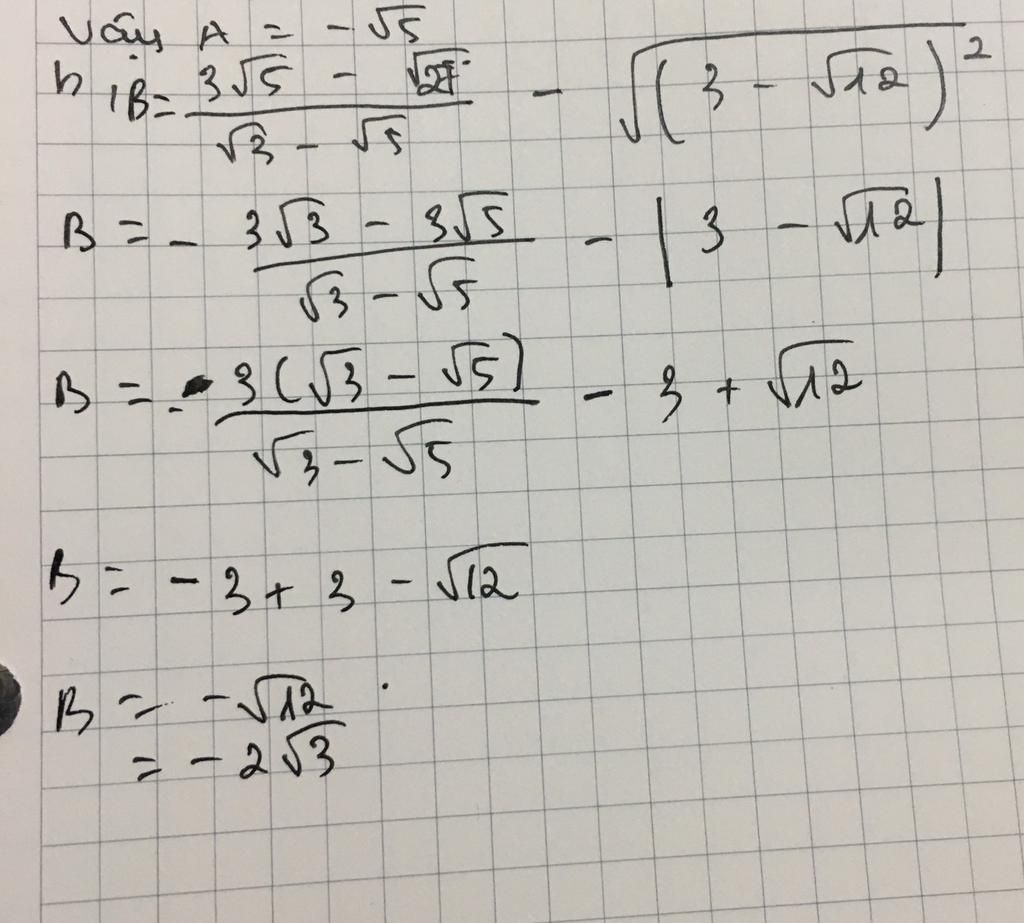 Vậy A = -√5
b, B = (3√5 - √27)/(√3 - √5) - √((3 - √12)²)
B = - (3√3 - 3√5)/(√3 - √5) - |3 - √12|
B = - 3(√3 - √5)/(√3 - √5) - 3 + √12
B = - 3 + 3 - √12
B = -√12
= - 2√3